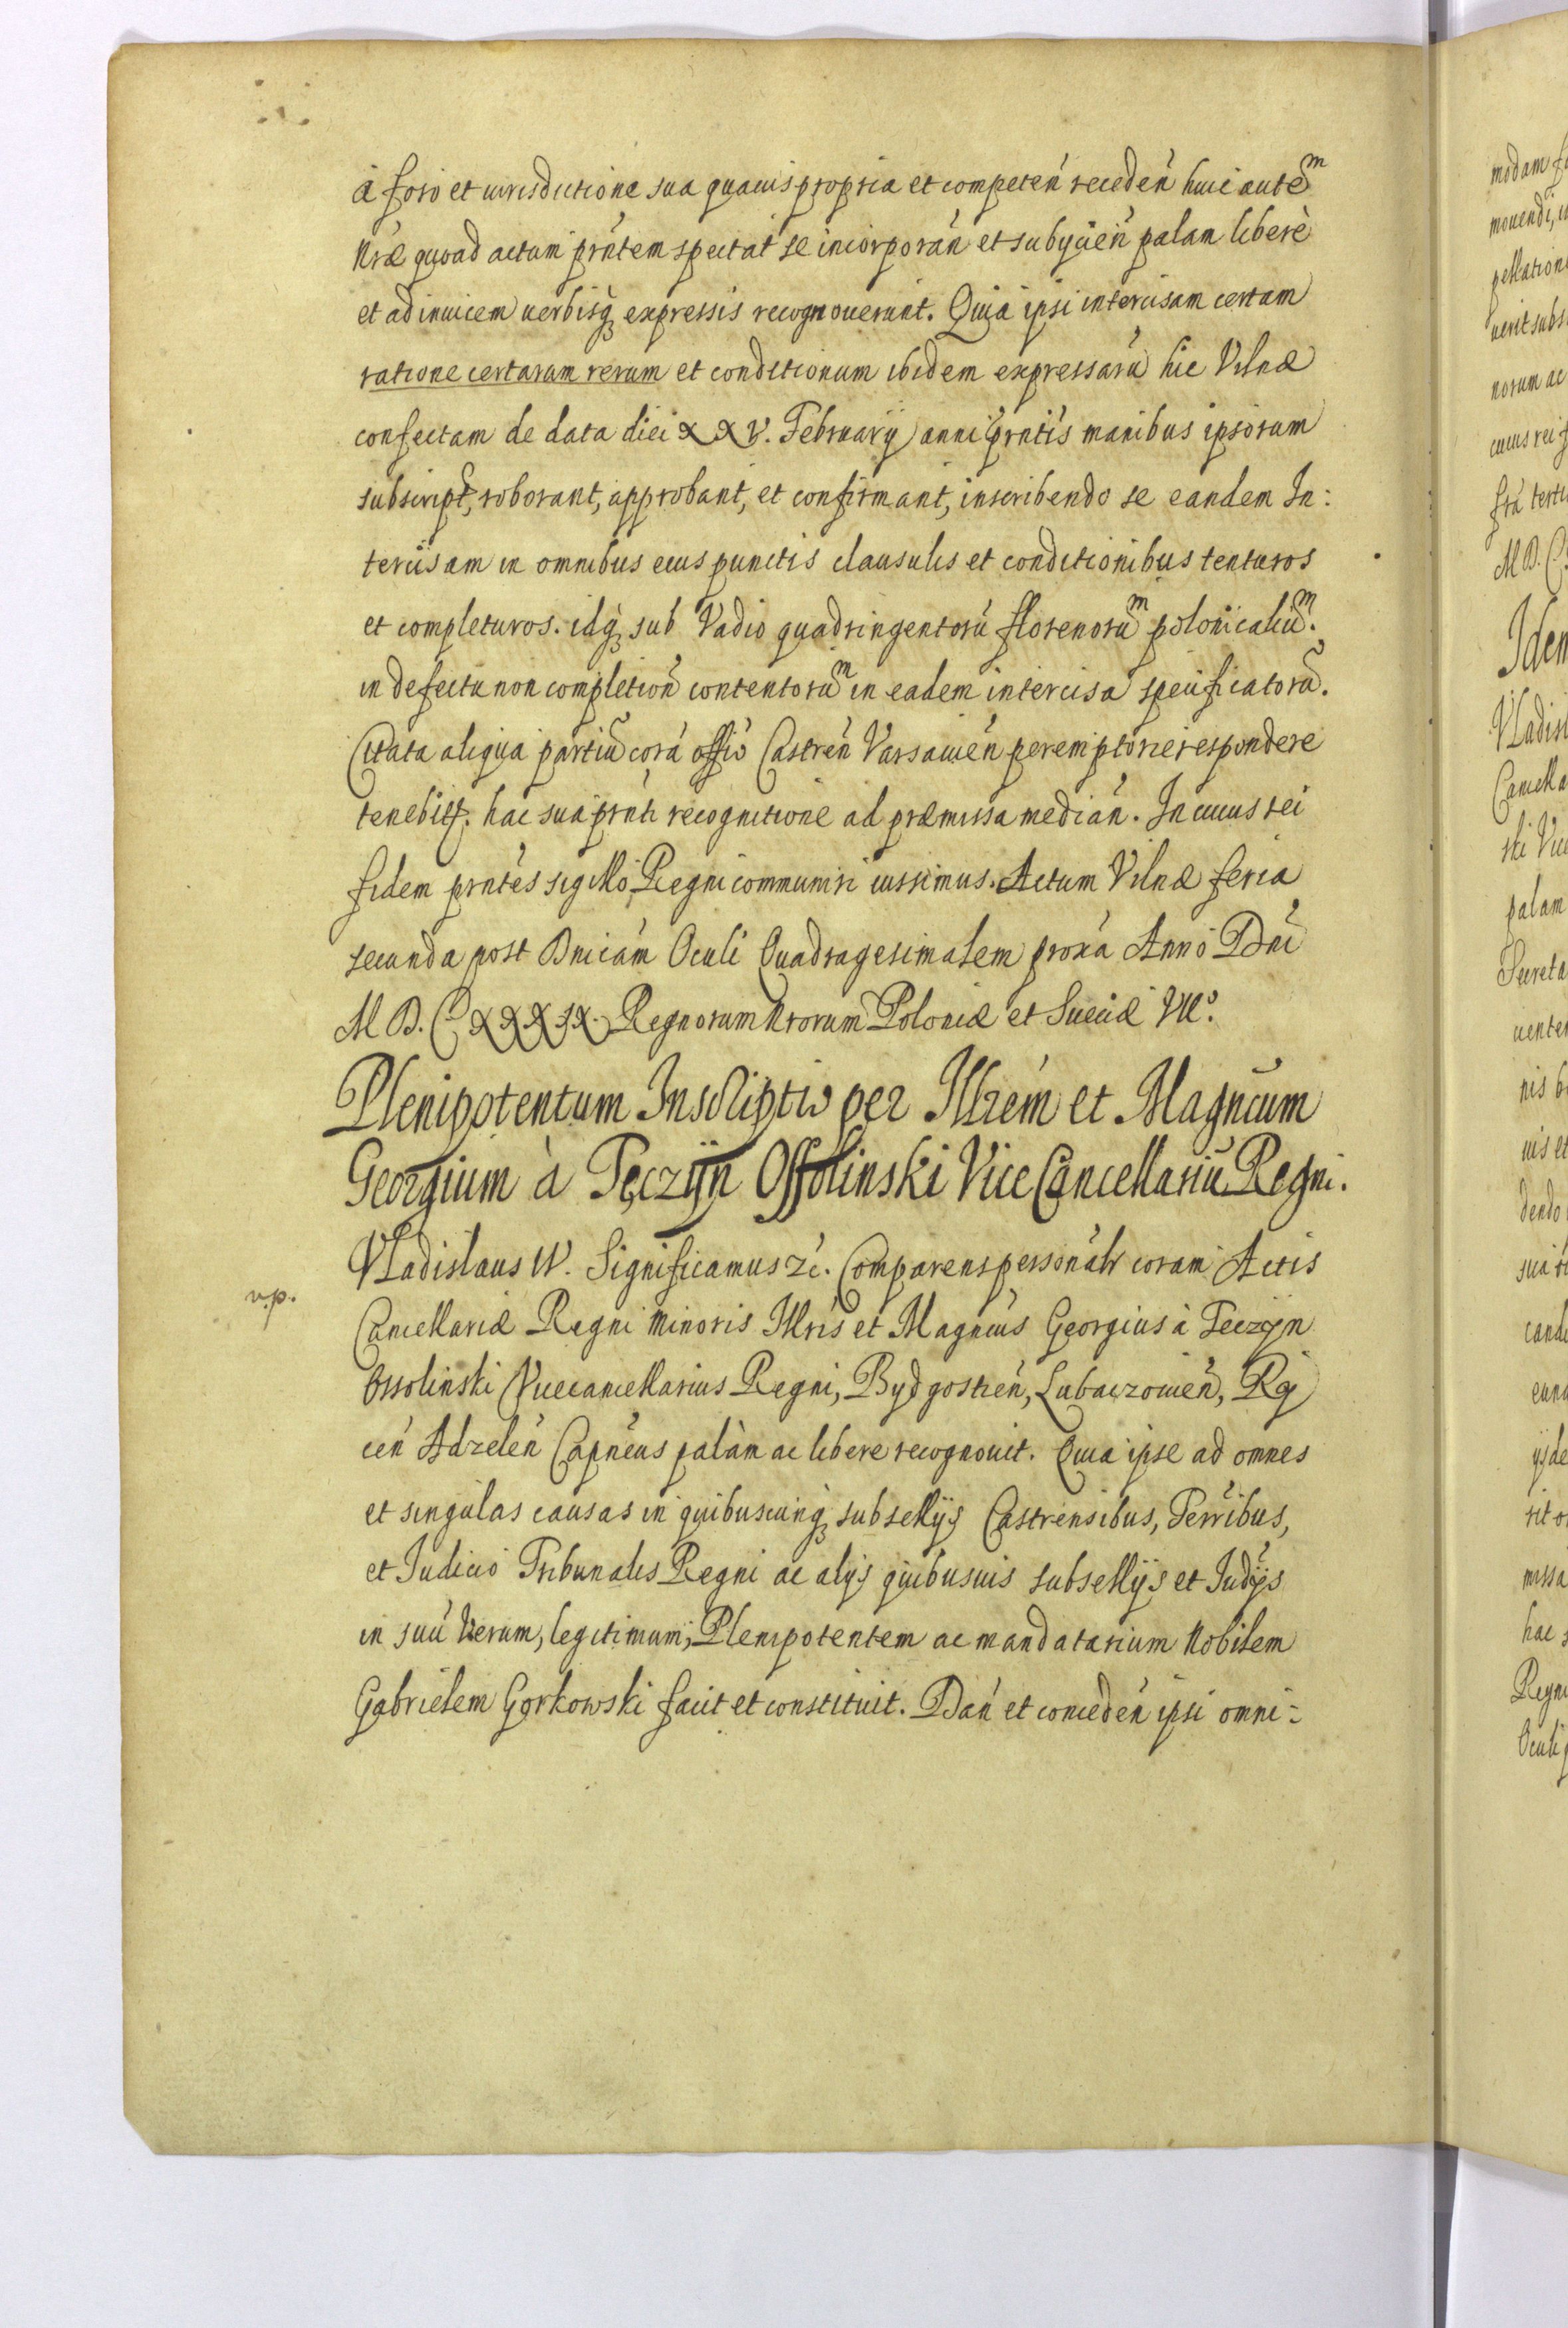 à foro et iurisdictione sua quauis propria et competeń recedeń huic autē^m
Nræ quoad actum prńtem spectat se incorporań et subÿcień palam liberè
et ad inuicem uerbisq₃ expressis recognouerunt. Quia ipsi intercisam certam
ratione certarum rerum et conditionum ibidem expressarū hic Vilnæ
confectam de data diei XXV. Februarÿ anni prńtis manibus ipsorum
subscript, roborant, approbant, et confirmant, inscribendo se eandem In:
tercisam in omnibus eius punctis clausulis et conditionibus tenturos
et completuros. idq₃ sub Vadio quadringentorū florenorū^m polonicaliū^m.
in defectu non completioń contentorū^m in eadem intercisa specificatorū.
Citata aliqua partiū corá offió Castreń Varsauień peremptorie respondere
tenebitʳ. hac sua prńti recognitione ad præmissa mediań. In cuius rei
fidem prńtes sigillo Regni communiri iussimus. Actum Vilnæ feria
secunda post Dnicám Oculi Quadragesimalem proxá Anno Dńi
M D. C XXXIX. Regnorum Nrorum Poloniæ et Sueciæ VII°.
Plenipotentum Inscriptio per Illrem et Magńcum
Georgium à Tęczÿn Ossolinski Vice Cancellariū Regni.
Vladislaus IV. Significamus &c. Comparens personalr coram Actis
v.p.
Cancellariæ Regni Minoris Illris et Magńcus Georgius à Teczÿn
Ossolinski Vicecancellarius Regni, Bydgostień, Lubaczouień, Ry
ceń Adzeleń Capńeus palàm ac libere recognouit. Quia ipse ad omnes
et singulas causas in quibuscunq₃ subsellÿs Castrensibus, Terribus,
et Judicio Tribunalis Regni ac alÿs quibusuis subsellÿs et Judÿs
in suū Verum, legitimum, Plenipotentem ac mandatarium Nobilem
Gabrielem Gorkowski facit et constituit. Dań et concedeń ipsi omni: